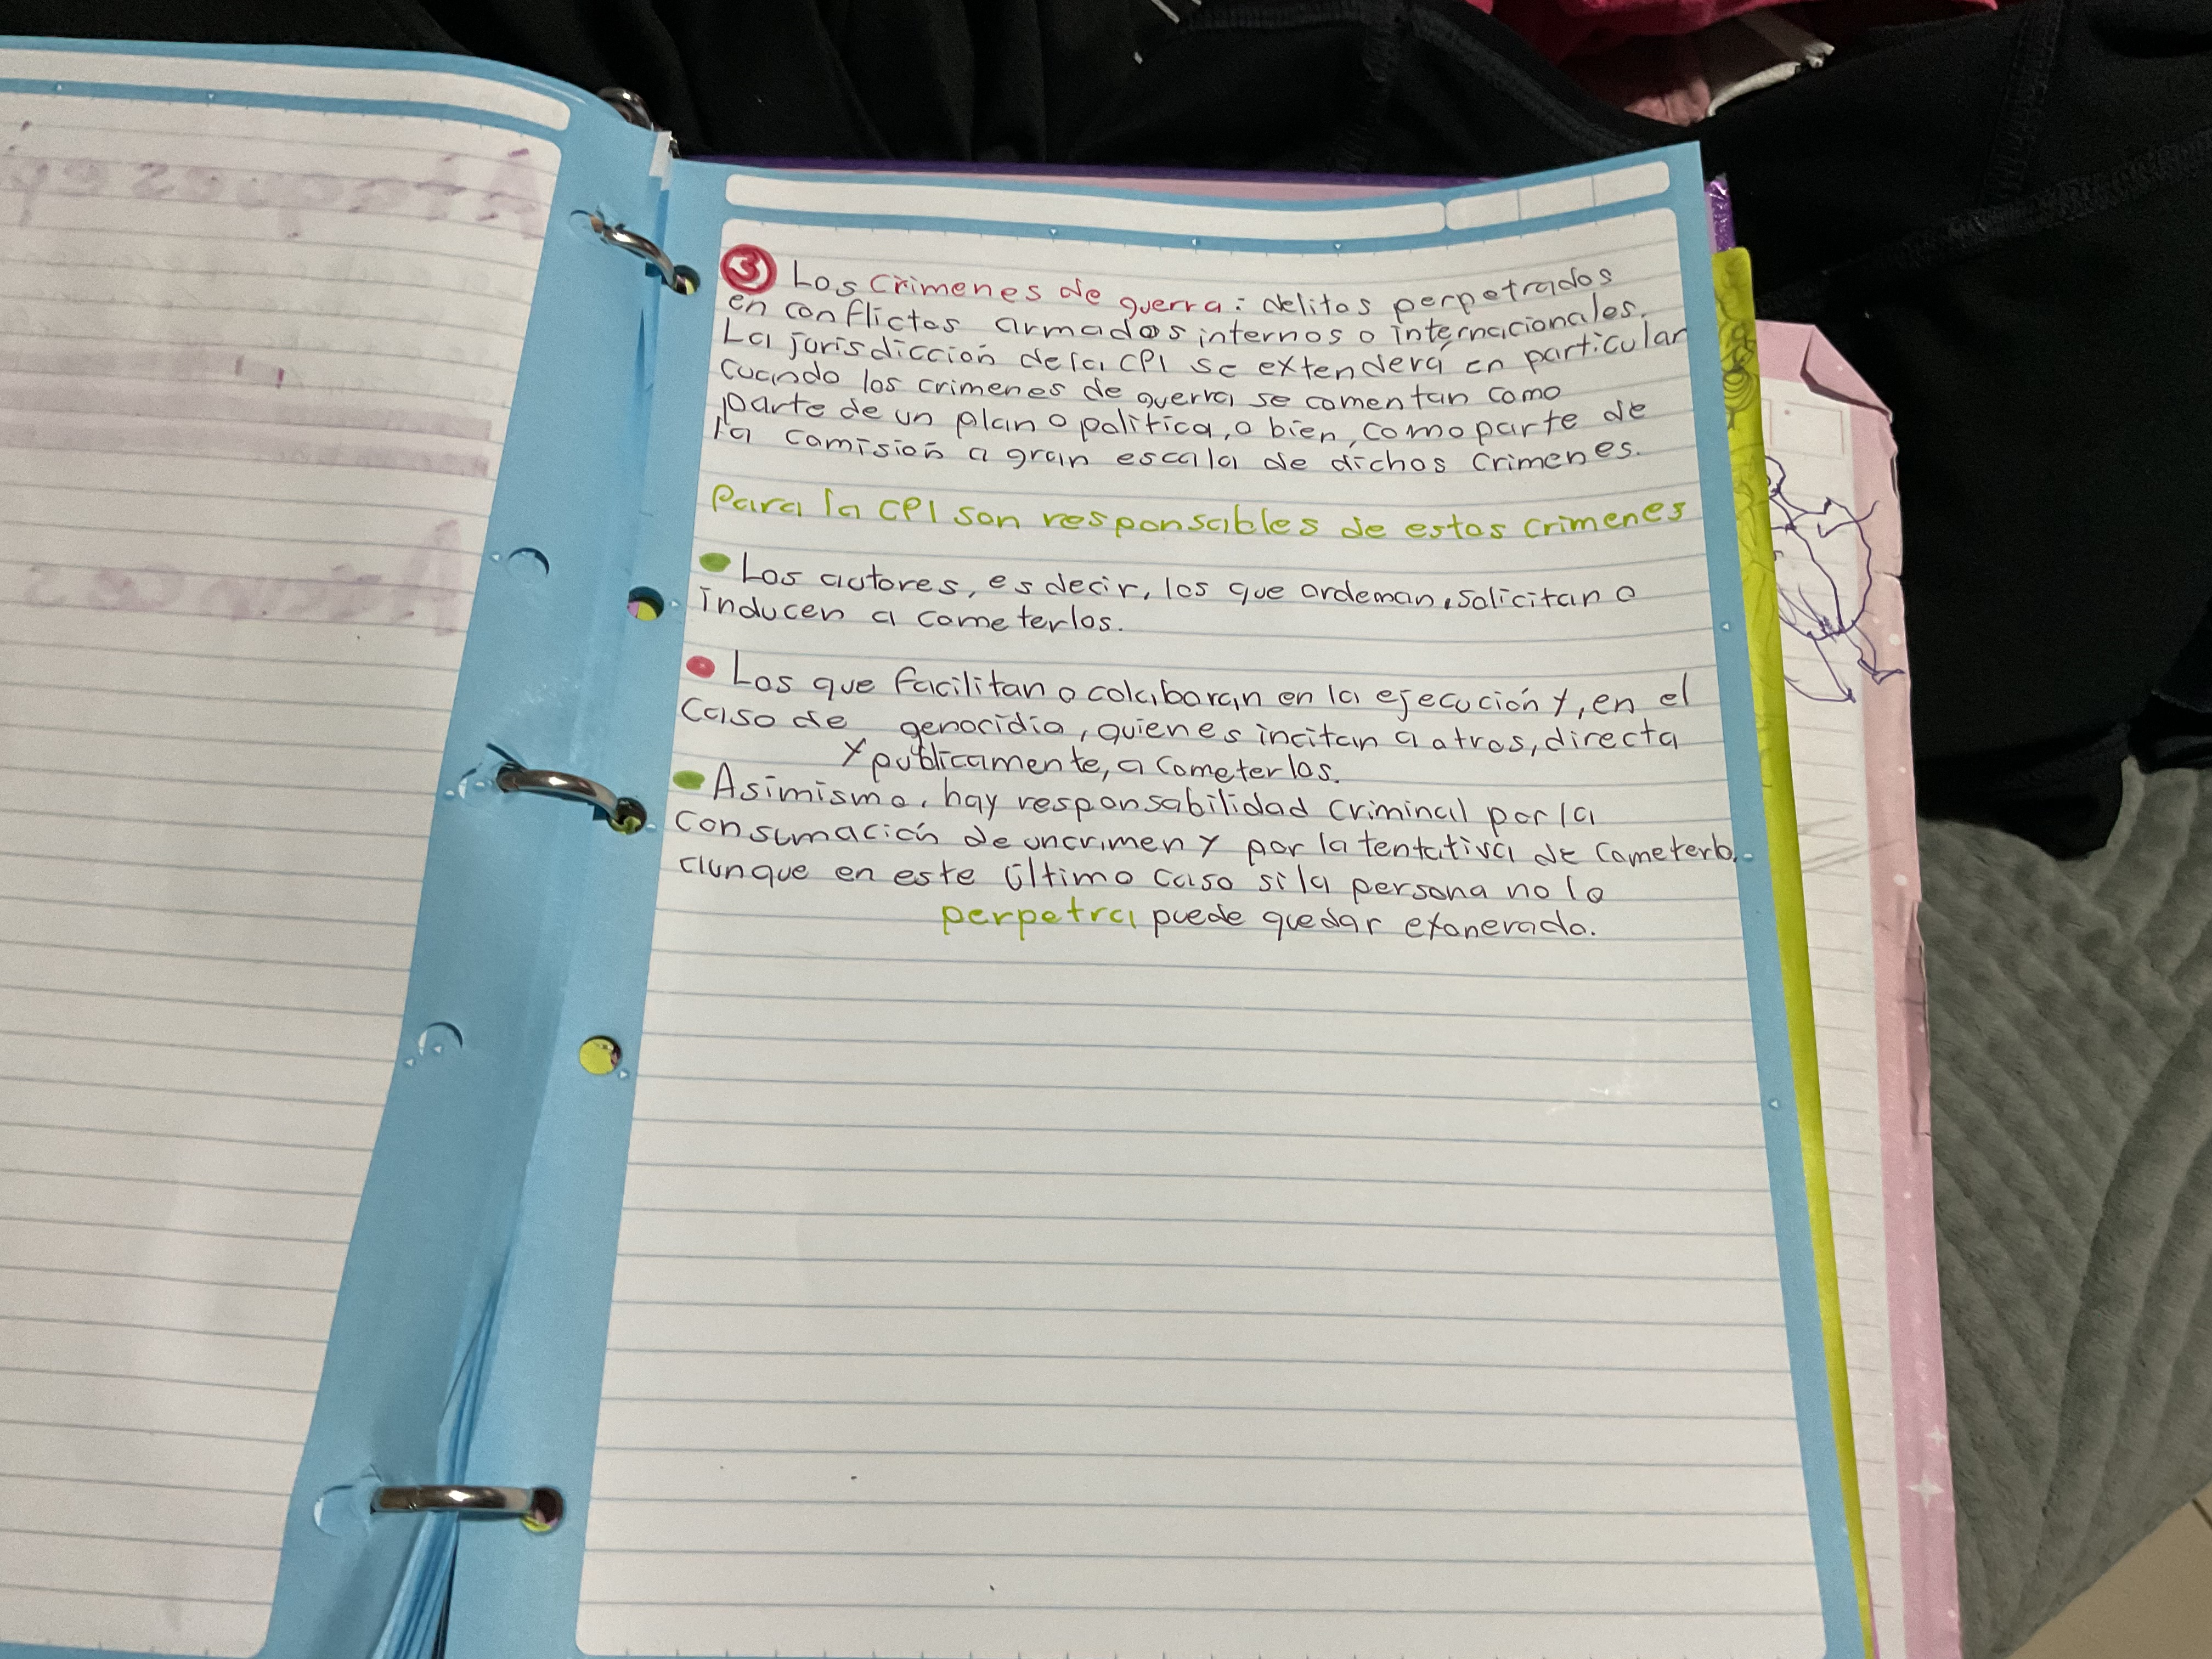 Ataques epi
③ Los crimenes de guerra: delitos perpetrados
en conflictos armados internos o internacionales.
La jurisdicción de la CPI se extenderá en particular
cuando los crimenes de guerra se comentan como
parte de un plan o politica, o bien, como parte de
la comisión a gran escala de dichos crimenes.
Para la CPI son responsables de estos crimenes
Los autores, es decir, los que ordeman, solicitan o
inducen a cometerlos.
Los que facilitan o colaboran en la ejecución y, en el
caso de genocidio, quienes incitan a otros, directa
y publicamente, a cometerlos.
Asimismo, hay responsabilidad criminal por la
consumación de un crimen y por la tentativa de cometerlo,
aunque en este último caso si la persona no lo
perpetra puede quedar exonerada.